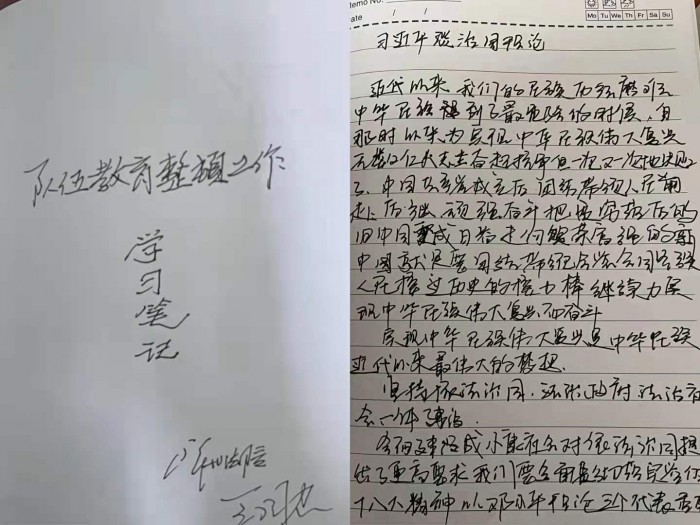 队伍教育整顿工作
学习笔记
Memo No.
Date / /
Mo Tu We Th Fr Sa Su
习近平谈治国理论
近代以来 我们的民族历经磨难
中华民族遇到了最危险的时候,自
那时以来,为实现中华民族伟大复兴
无数仁人志士奋起抗争但一次又一次地失败
了、中国共产党成立后团结带领人民前
赴后继、顽强奋斗把贫穷落后的
旧中国变成日益走向繁荣富强的新
中国
人民接过历史的接力棒 继续为实
现中华民族伟大复兴而奋斗
实现中华民族伟大复兴是中华民族
近代以来最伟大的梦想.
坚持依法治国.法治政府 法治社
会一体建设.
全面建成小康社会对依法治国提
出了更高要求 我们要全面贯彻落实党的
十八大精神以邓小平理论三个代表重要